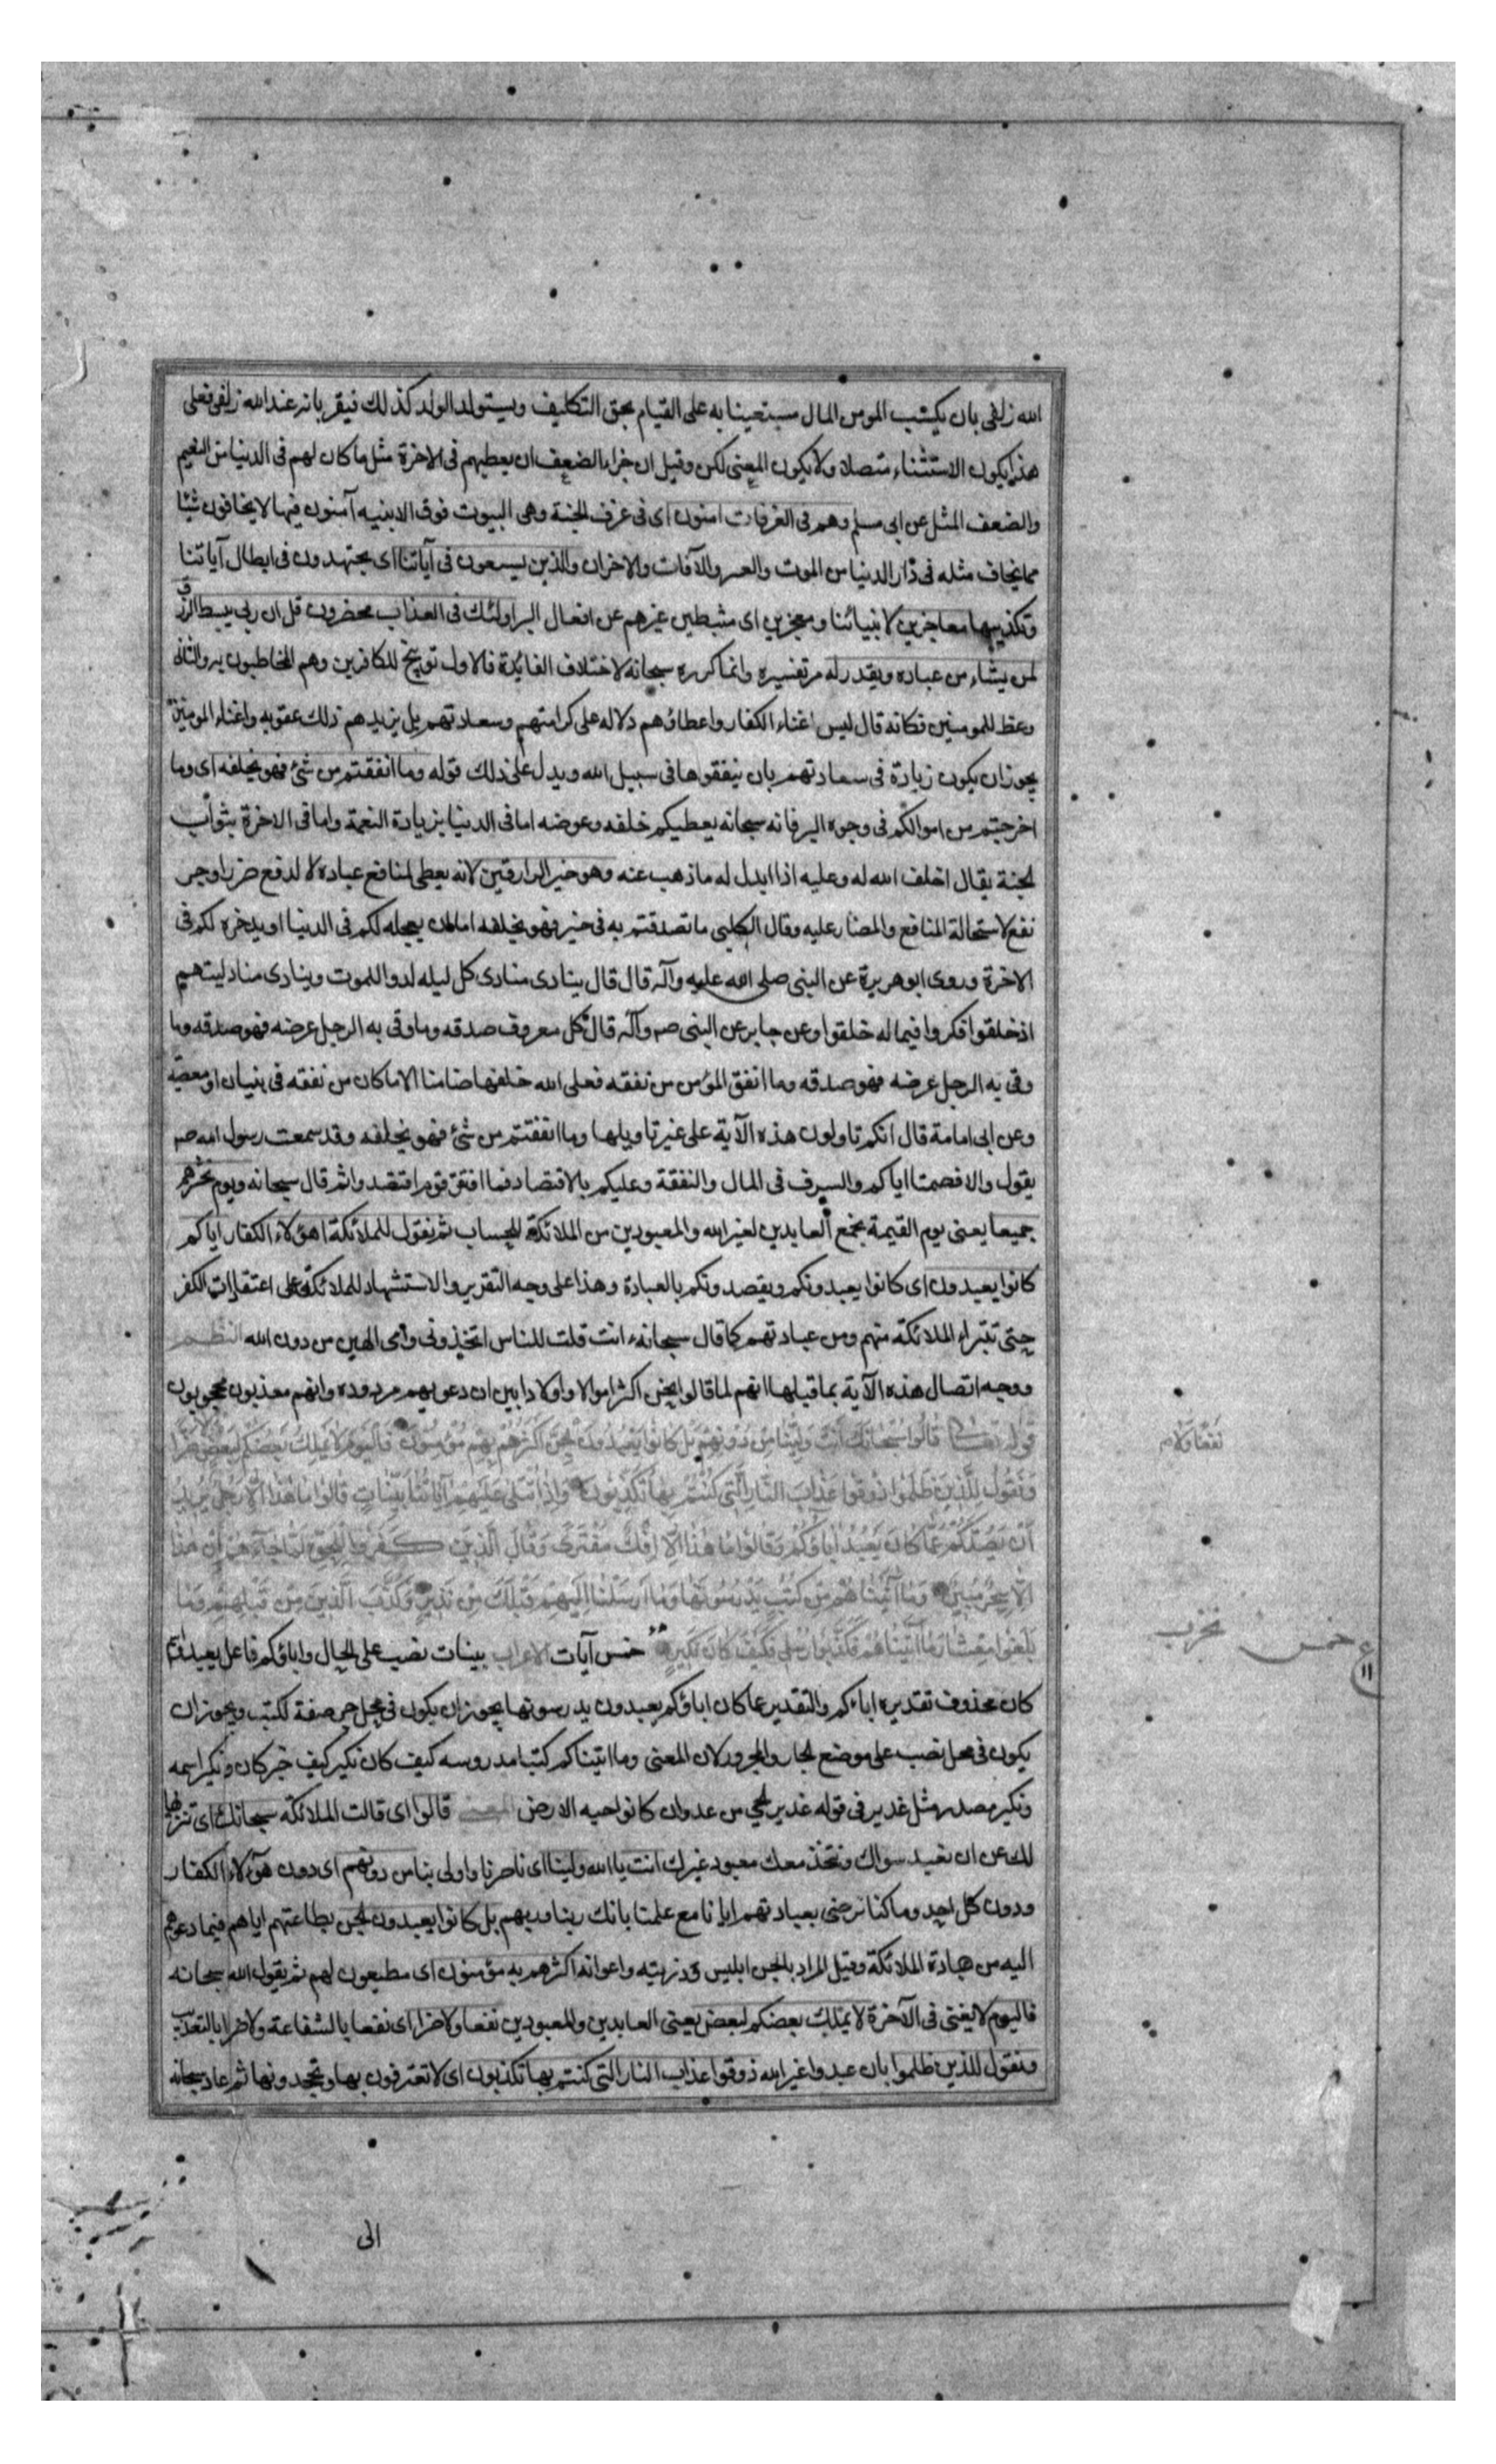 الله زلفى بان يكتسب المومن المال مستعينا به على القيام بحق التكاليف ويستولد الولد كذلك فيقربانه عند الله زلفى فعلى
هذا يكون الاستثناء متصلا ولا يكون المعنى لكن وقيل ان جزاء الضعف ان يعطيهم فى الاخرة مثل ما كان لهم فى الدنيا من النعيم
والضعف المثل عن ابى مسلم وهم فى الغرفات امنون اى فى غرف الجنة وهى البيوت فوق الابنيه آمنون فيها لا يخافون شيئا
مما يخاف مثله فى دار الدنيا من الموت والآفات والاحزان والذين يسعون فى آياتنا اى يجتهدون فى ابطال آياتنا
وتكذيبها معاجزين لانبيائنا ومعجزين اى مثبطين غيرهم عن افعال البر اولئك فى العذاب محضرون قل ان ربى يبسط الرزق
لمن يشاء من عباده ويقدر له مر تفسيره وانما كرره سبحانه لاختلاف الفائدة فالاول توبيخ للكافرين وهم المخاطبون به والثانى
وعظ للمومنين فكانه قال ليس اغناء الكفار واعطاؤهم دلاله على كرامتهم وسعادتهم بل يزيدهم ذلك عقوبه واغناء المومنين
يجوز ان يكون زيادة فى سعادتهم بان ينفقوها فى سبيل الله ويدل على ذلك قوله وما انفقتم من شئ فهو يخلفه اى وما
اخرجتم من اموالكم فى وجوه البر فانه سبحانه يعطيكم خلفه وعوضه اما فى الدنيا بزيادة النعمة واما فى الاخرة بثواب
الجنة يقال اخلف الله له وعليه اذا ابدل له ما ذهب عنه وهو خير الرازقين لانه يعطى لمنافع عباده لا لدفع ضرر او جر
نفع لاستحالة المنافع والمضار عليه وقال الكلبى ما تصدقتم به فى خير فهو يخلفه اما ان يعجله لكم فى الدنيا او يدخره لكم فى
الاخرة وروى ابو هريرة عن النبى صلى الله عليه وآله قال قال ينادى منادى كل ليله لدوا للموت وينادى مناد ليتهم
اذ خلقوا فكروا فيما له خلقوا وعن جابر عن النبى صم وآله قال كل معروف صدقه وما وقى به الرجل عرضه فهو صدقه وما
وقى به الرجل عرضه فهو صدقه وما انفق المؤمن من نفقه فعلى الله خلفها ضامنا الا ما كان من نفقه فى بنيان او معصية
وعن ابى امامة قال انكم تاولون هذه الآية على غير تاويلها وما انفقتم من شئ فهو يخلفه وقد سمعت رسول الله صم
يقول والا فصمتا اياكم والسرف فى المال والنفقة وعليكم بالاقتصاد فما افتقر قوم اقتصدوا ثم قال سبحانه ويوم نحشرهم
جميعا يعنى يوم القيمة نجمع العابدين لغير الله والمعبودين من الملائكة للحساب ثم نقول للملائكة اهؤلاء الكفار اياكم
كانوا يعبدون اى كانوا يعبدونكم ويقصدونكم بالعبادة وهذا على وجه التقرير والاستشهاد للملائكة على اعتقادات الكفر
حتى تتبراء الملائكة منهم ومن عبادتهم كما قال سبحانه ءانت قلت للناس اتخذونى وامى الهين من دون الله النظم
ووجه اتصال هذه الآية بما قبلها انهم لما قالوا نحن اكثر اموالا واولادا بين ان دعويهم مردوده وانهم معذبون محجوبون
قوله تعالى قَالُوا سُبْحَانَكَ اَنْتَ وَلِيُّنَا مِنْ دُونِهِمْ بَلْ كَانُوا يَعْبُدُونَ الْجِنَّ اَكْثَرُهُمْ بِهِمْ مُؤْمِنُونَ فَالْيَوْمَ لَا يَمْلِكُ بَعْضُكُمْ لِبَعْضٍ
وَنَقُولُ لِلَّذِينَ ظَلَمُوا ذُوقُوا عَذَابَ النَّارِ الَّتِى كُنْتُمْ بِهَا تُكَذِّبُونَ وَاِذَا تُتْلَى عَلَيْهِمْ آيَاتُنَا بَيِّنَاتٍ قَالُوا مَا هٰذَا اِلَّا رَجُلٌ يُرِيدُ
اَنْ يَصُدَّكُمْ عَمَّا كَانَ يَعْبُدُ اٰبَاؤُكُمْ وَقَالُوا مَا هٰذَا اِلَّا اِفْكٌ مُفْتَرًى وَقَالَ الَّذِينَ كَفَرُوا لِلْحَقِّ لَمَّا جَاءَهُمْ اِنْ هٰذَا
اِلَّا سِحْرٌ مُبِينٌ وَمَا آتَيْنَاهُمْ مِنْ كُتُبٍ يَدْرُسُونَهَا وَمَا اَرْسَلْنَا اِلَيْهِمْ قَبْلَكَ مِنْ نَذِيرٍ وَكَذَّبَ الَّذِينَ مِنْ قَبْلِهِمْ وَمَا
بَلَغُوا مِعْشَارَ مَا آتَيْنَاهُمْ فَكَذَّبُوا رُسُلِى فَكَيْفَ كَانَ نَكِيرِ خمس آيات الاعراب بينات نصب على الحال واباؤكم فاعل يعبد
كان محذوف تقديره اباءكم والتقدير عما كان اباؤكم يعبدون يدرسونها يجوز ان يكون فى محل جر صفة لكتب ويجوز ان
يكون فى محل نصب على موضع الجار والمجرور لان المعنى وما اتيناكم كتبا مدروسه كيف كان نكير كيف خبر كان ونكير اسمه
ونكير مصدر مثل غدير فى قوله غدير الحى من عدوان كانوا حيه الارض المعنى قالوا اى قالت الملائكة سبحانك اى تنزيها
لك عن ان نعبد سواك ونتخذ معك معبود غيرك انت يا الله ولينا اى ناصرنا واولى بنا من دونهم اى دون هؤلاء الكفار
ودون كل احد وما كنا نرضى بعبادتهم ايانا مع علمنا بانك ربنا وربهم بل كانوا يعبدون الجن بطاعتهم اياهم فيما دعوهم
اليه من عبادة الملائكة وقيل المراد بالجن ابليس وذريته واعوانه اكثرهم به مؤمنون اى مطيعون لهم ثم يقول الله سبحانه
فاليوم لا يغنى فى الآخرة لا يملك بعضكم لبعض يعنى العابدين والمعبودين نفعا ولا ضرا اى نفعا بالشفاعة ولا ضرا بالتعذيب
ونقول للذين ظلموا بان عبدوا غير الله ذوقوا عذاب النار التى كنتم بها تكذبون اى لا تعترفون بها وتجحدونها ثم عاد سبحانه
الى
ع خمس
١١